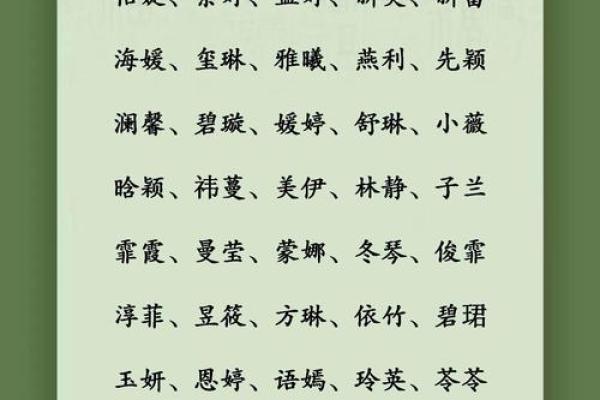 海媛、玺琳、雅曦、燕利、先颖
澜馨、碧璇、媛婷、舒琳、小薇
晗颖、祎蔓、美伊、林静、子兰
霏霞、曼莹、蒙娜、冬琴、俊霏
淳菲、昱筱、方琳、依竹、碧珺
玉妍、恩婷、语嫣、玲英、苓苓